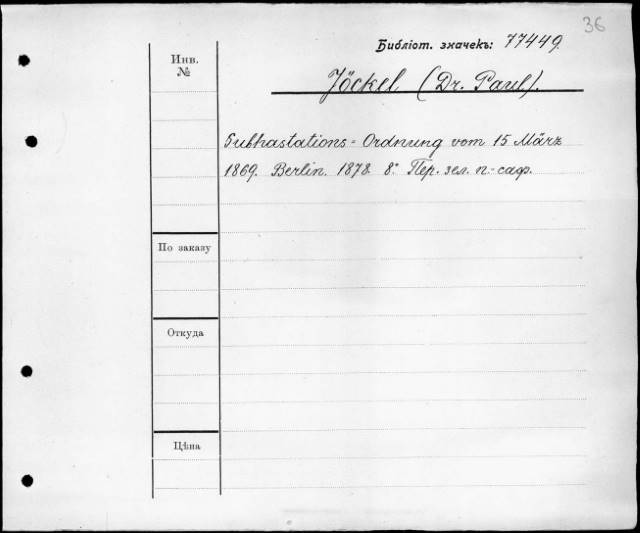 36
Библіот. значекъ: 77449.
Инв.
№
Jöckel (Dr. Paul).
Subhastations=Ordnung vom 15 März
1869. Berlin. 1878. 8º Пер. зел. п-саф.
По заказу
Откуда
Цѣна